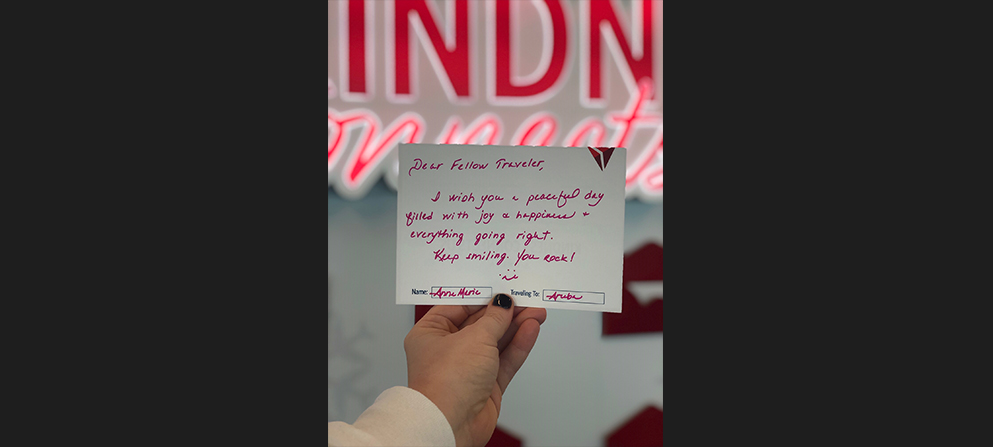 INDN
onnects
Dear Fellow Traveler,
I wish you a peaceful day
filled with joy & happiness +
everything going right.
Keep smiling. You rock!
Name: Anne Marie Traveling To: Aruba